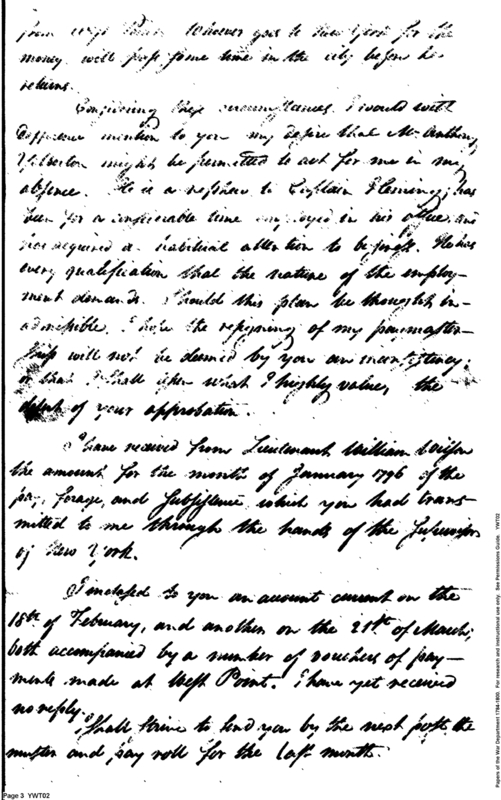 from West Point. Whoever goes to New York for the
money will pass some time in the city before he
returns.
Considering these circumstances I would with
deference mention to you my desire that Mr. Anthony
might be permitted to act for me in my
absence. He is a nephew to Captain Fleming; has
been for a considerable time employed in his office, and
has acquired a habitual attention to business. He has
every qualification that the nature of the employ-
ment demands. Should this plan be thought in-
admissible, I hope the resigning of my paymaster-
ship will not be deemed by you an inconsistency;
or that I shall what I highly value, the
of your approbation.
I have received from Lieutenant William Wilson
the amount for the month of January 1796 of the
pay, forage, and subsistence, which you had trans-
mitted to me through the hands of the Supervisor
of New York.
I inclosed to you an account current on the
18th of February, and another on the 21st of March;
both accompanied by a number of vouchers of pay-
ments made at West Point. I have yet received
no reply.
I shall strive to send you by the next post the
muster and pay roll for the last month.
Page 3 YWT02
Papers of the War Department 1784-1800. For research and instructional use only. See Permissions Guide. YWT02